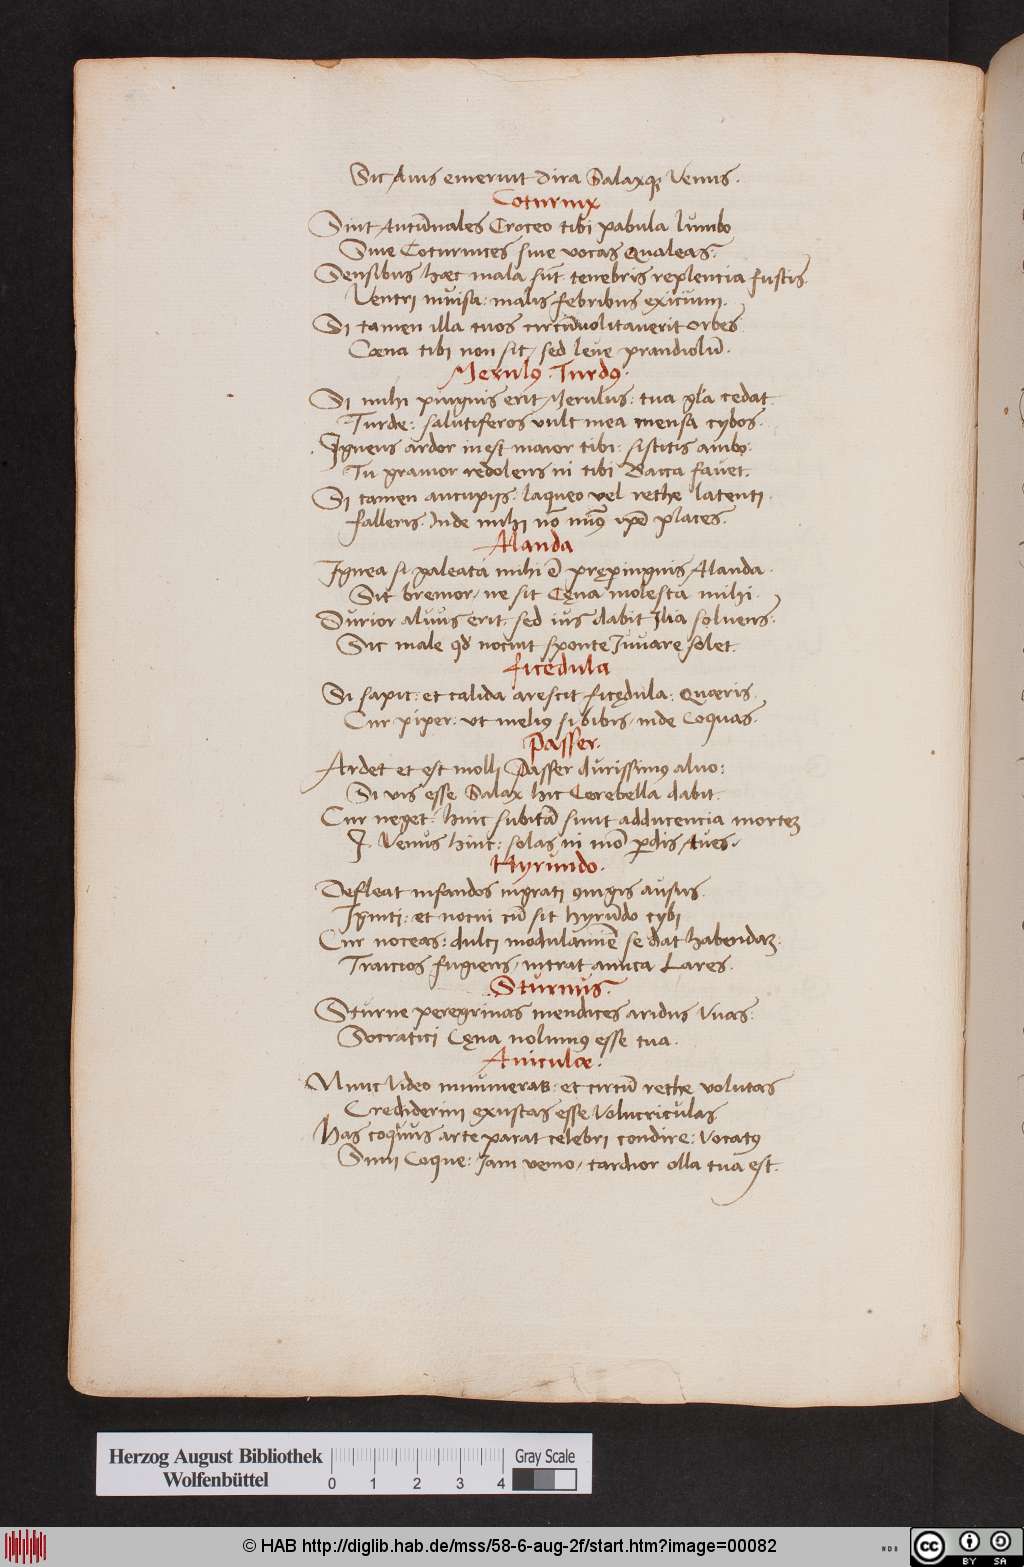 Sic Auis emeruit dira Salaxq; Venus.
Coturnix
Sint Autūnales Croceo tibi pabula lumbo
Siue Coturnices siue vocas Qualeas:
Sensibus hæc mala sūt tenebris replencia fustis
Ventri inuisa: malis febribus exicium.
Si tamen illa tuos circūuolitauerit orbes
Cœna tibi non sit, sed leue prandiolū.
Merulꝰ. Turdꝰ.
Si mihi pinguis erit Merulus: tua gl̄a cedat
Turde: salutiferos vult mea mensa cybos.
Igneus ardor inest maior tibi: sistitis ambo:
Tu grauior redolens ni tibi Bacca fauet.
Si tamen aucupijs: laqueo vel rethe latenti
falleris. Inde mihi nō minꝰ ip̄e places.
Alauda
Ignea si galeata mihi ē prępinguis Alauda.
Sit breuior, ne sit Cęna molesta mihi.
Durior aluus erit. sed ius dabit Ilia soluens:
Sic male qd nocuit sponte Iuuare solet.
ficedula
Si sapit: et calida arescit ficędula: Quæris
Cur piper: ut meliꝰ si bibis, inde Coquas.
Passer.
Ardet et est molli Passer durissimꝰ aluo:
Si vis esse Salax hic Cerebella dabit.
Cur neget: hinc subitā sunt adducencia mortem
I. Venus hinc: solas ni mō perdis Aues.
Hyrundo.
Defleat infandos ingrati coniugis ausus.
Igniti: et nocui cū sit hyrūdo cybi
Cur noceas: dulci modulamiē se dat habendam.
Traicios fugiens, intrat amica Lares.
Sturnus.
Sturne peregrinas mendices aridus Vuas:
Socratici Cęna nolumꝰ esse tua.
Auiculæ.
Nunc Video innumeras: et circū rethe volutas
Crediderim exustas esse Volucriculas
Has coquus arte parat celebri condire: Vocatꝰ
Simi Coque: Iam venio, tardior olla tua est.
Herzog August Bibliothek
Wolfenbüttel
0 1 2 3 4
Gray Scale
© HAB http://diglib.hab.de/mss/58-6-aug-2f/start.htm?image=00082
cc BY SA